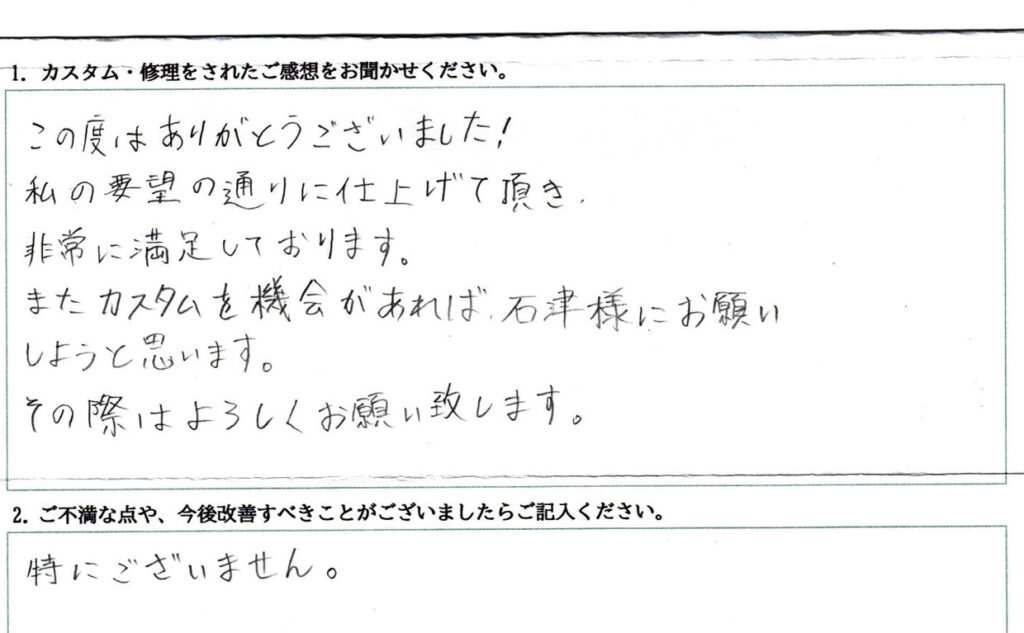 1. カスタム・修理をされたご感想をお聞かせください。
この度はありがとうございました!
私の要望の通りに仕上げて頂き、
非常に満足しております。
またカスタムを機会があれば、石津様にお願い
しようと思います。
その際はよろしくお願い致します。
2. ご不満な点や、今後改善すべきことがございましたらご記入ください。
特にございません。